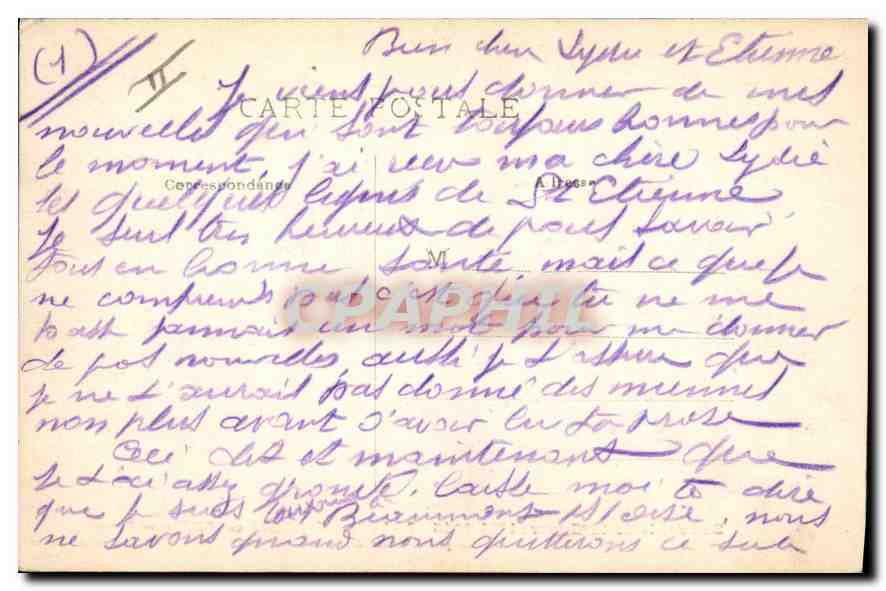 (1) II
Bien cher Lydie et Etienne
Je viens vous donner de mes
CARTE POSTALE
nouvelles qui sont toujours bonnes pour
le moment j'ai reçu ma chère Lydie
Correspondance Adresse
les quelques lignes de St Etienne
Je suis très heureux de vous savoir
tous en bonne santé mais ce que je
M
ne comprends pas c'est que tu ne me
CPAPHIL
pas jamais un mot pour me donner
de vos nouvelles aussi je t'assure que
je ne t'aurais pas donné des miennes
non plus avant d'avoir lu ta prose
Ceci dit et maintenant que
je t'ai assez grondé, laisse moi te dire
que je suis toujours à Beaumont s/ Oise, nous
ne savons quand nous quitterons ce